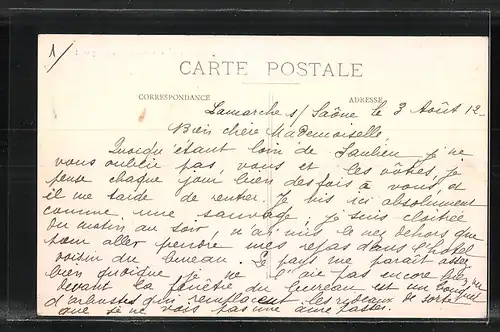 1/
CARTE POSTALE
CORRESPONDANCE ADRESSE
Lamarche s/ Saône le 3 Août 12
Bien chère Mademoiselle,
Quoiqu'étant loin de Saulieu, je ne
vous oublie pas, vous et les vôtres, je
pense chaque jour bien des fois à vous, et
il me tarde de rentrer. Je vis ici absolument
comme une sauvage, je suis cloîtrée
du matin au soir, n'ai mis le nez dehors que
pour aller prendre mes repas dans l'hôtel
voisin du bureau. Le pays me paraît assez
bien quoique je ne l'aie pas encore vu
devant la fenêtre du bureau est un bouquet
d'arbustes qui remplacent les rideaux de sorte
que je ne vois pas une âme passer.